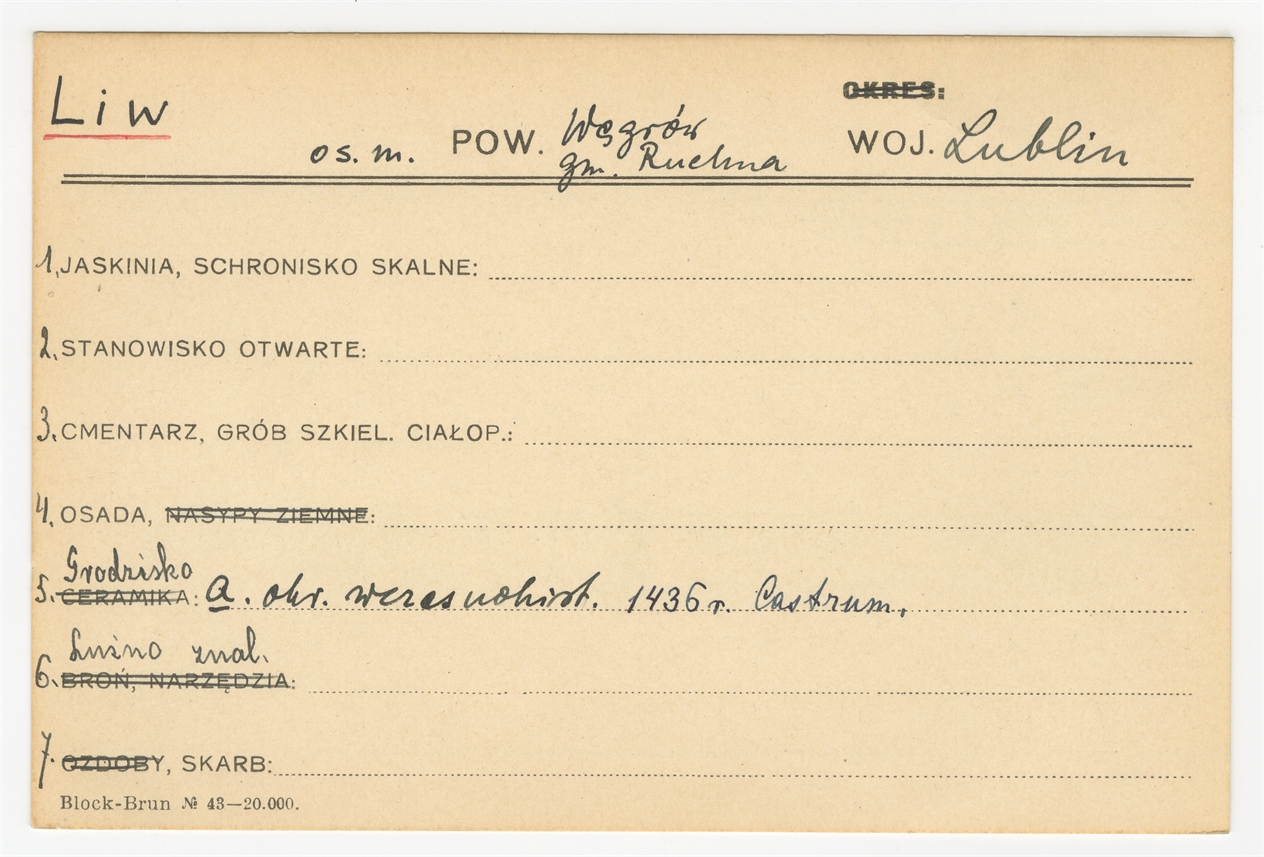 Liw
OKRES:
os. m. POW. Węgrów WOJ. Lublin
gm. Ruchna
1. JASKINIA, SCHRONISKO SKALNE:
2. STANOWISKO OTWARTE:
3. CMENTARZ, GRÓB SZKIEL. CIAŁOP.:
4. OSADA, NASYPY ZIEMNE:
Grodzisko
5. CERAMIKA: a. okr. wczesnohist. 1436 r. Castrum.
Luźno znal.
6. BROŃ, NARZĘDZIA:
7. OZDOBY, SKARB:
Block-Brun № 43—20.000.